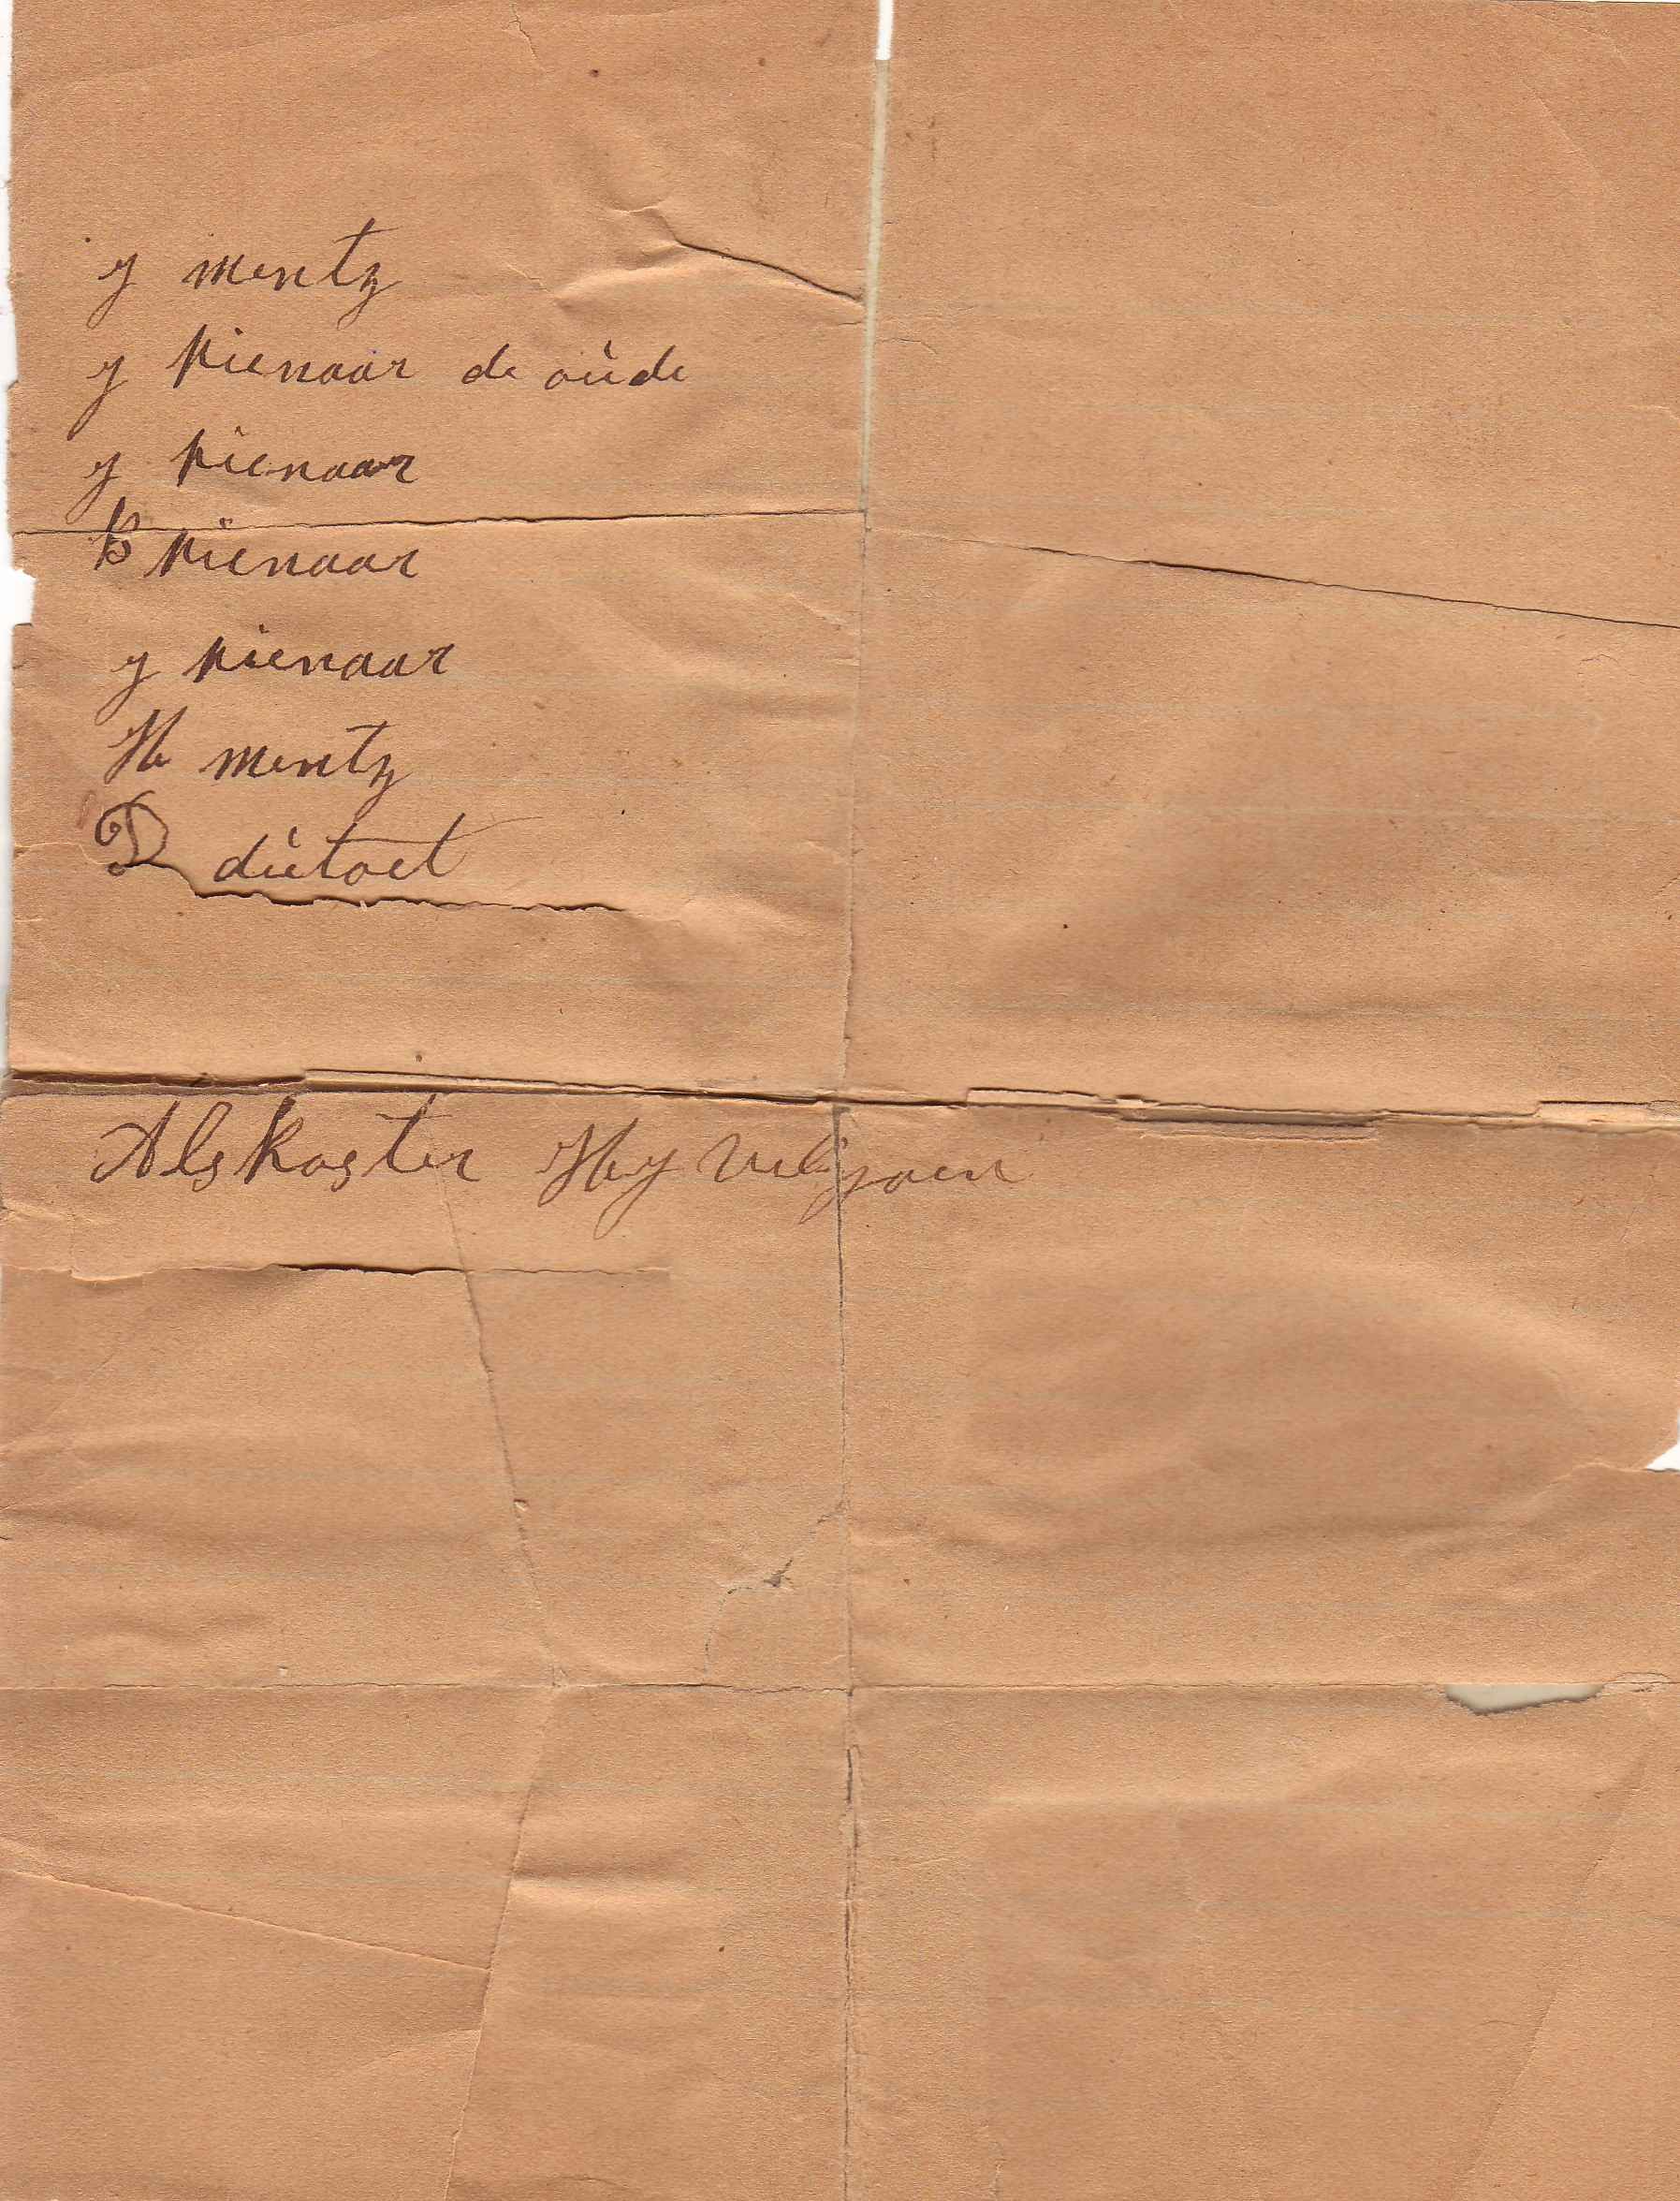 J mentz
J pienaar de oùde
J pienaar
B pienaar
J pienaar
H mentz
D dùtoet
Als koster H J viljoen